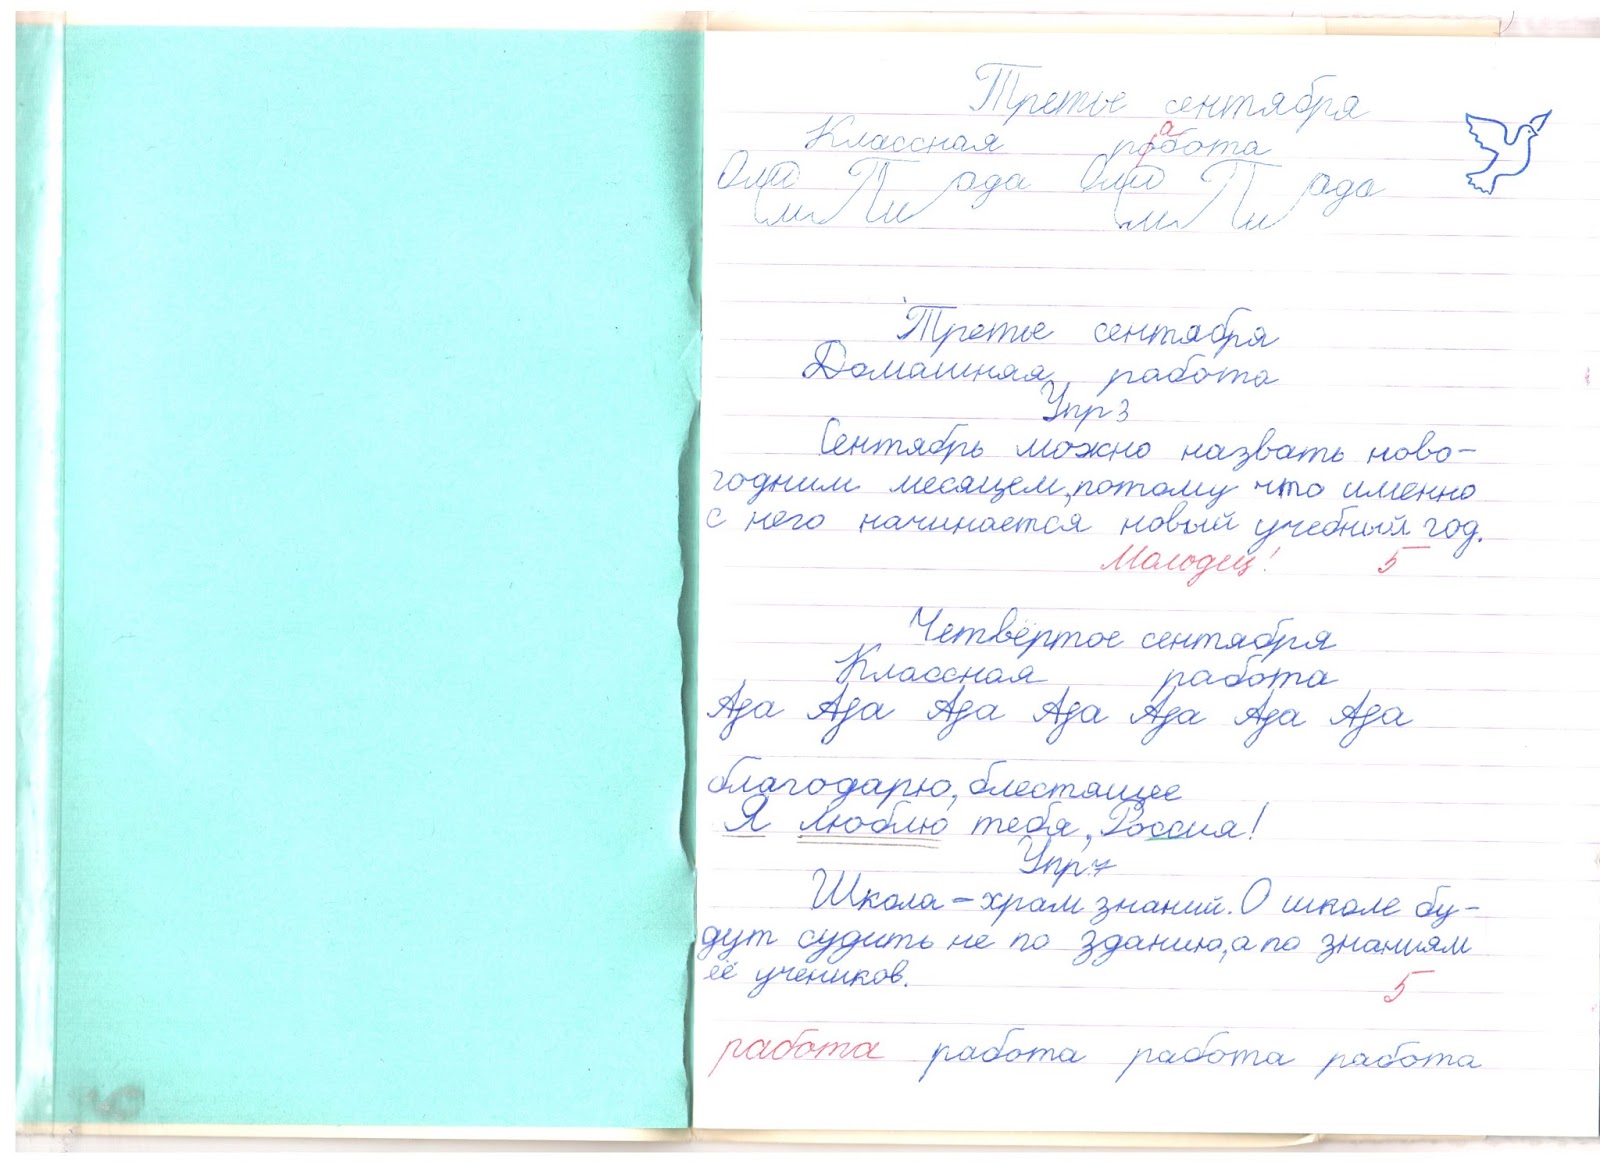 Третье сентября
Классная работа
Третье сентября
Домашняя работа
Упр 3
Сентябрь можно назвать ново-
годним месяцем, потому что именно
с него начинается новый учебный год.
Молодец! 5
Четвёртое сентября
Классная работа
Ада Ада Ада Ада Ада Ада Ада
благодарю, блестящее
Я люблю тебя, Россия!
Упр 7
Школа – храм знаний. О школе бу-
дут судить не по зданию, а по знаниям
её учеников.
5
работа работа работа работа